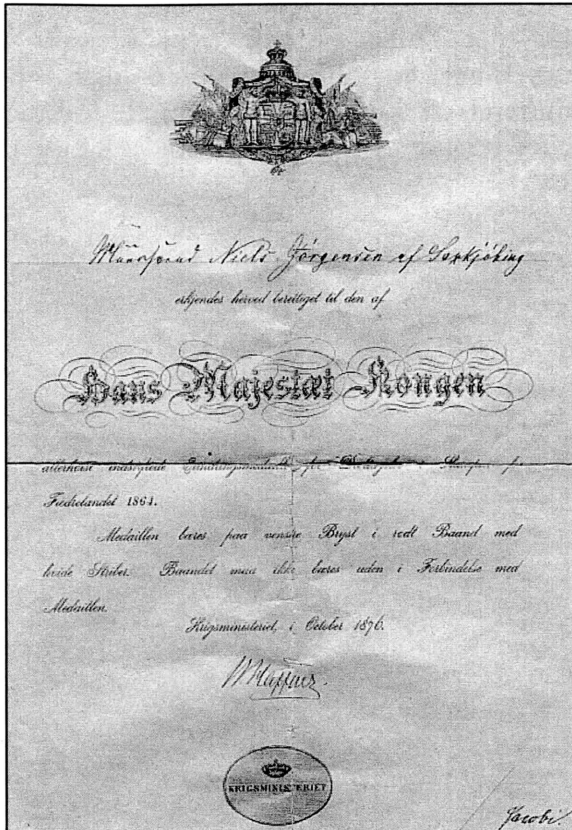 Muursvend Niels Jørgensen af Saxkjøbing
erkjendes herved berettiget til den af
Hans Majestæt Kongen
allerhøist indstiftede Erindringsmedaille for Deeltagelse i Kampen for
Fædrelandet 1864.
Medaillen bæres paa venstre Bryst i rødt Baand med
hvide Striber. Baandet maa ikke bæres uden i Forbindelse med
Medaillen.
Krigsministeriet, i October 1876.
W Haffner
KRIGSMINISTERIET
Jacobi.